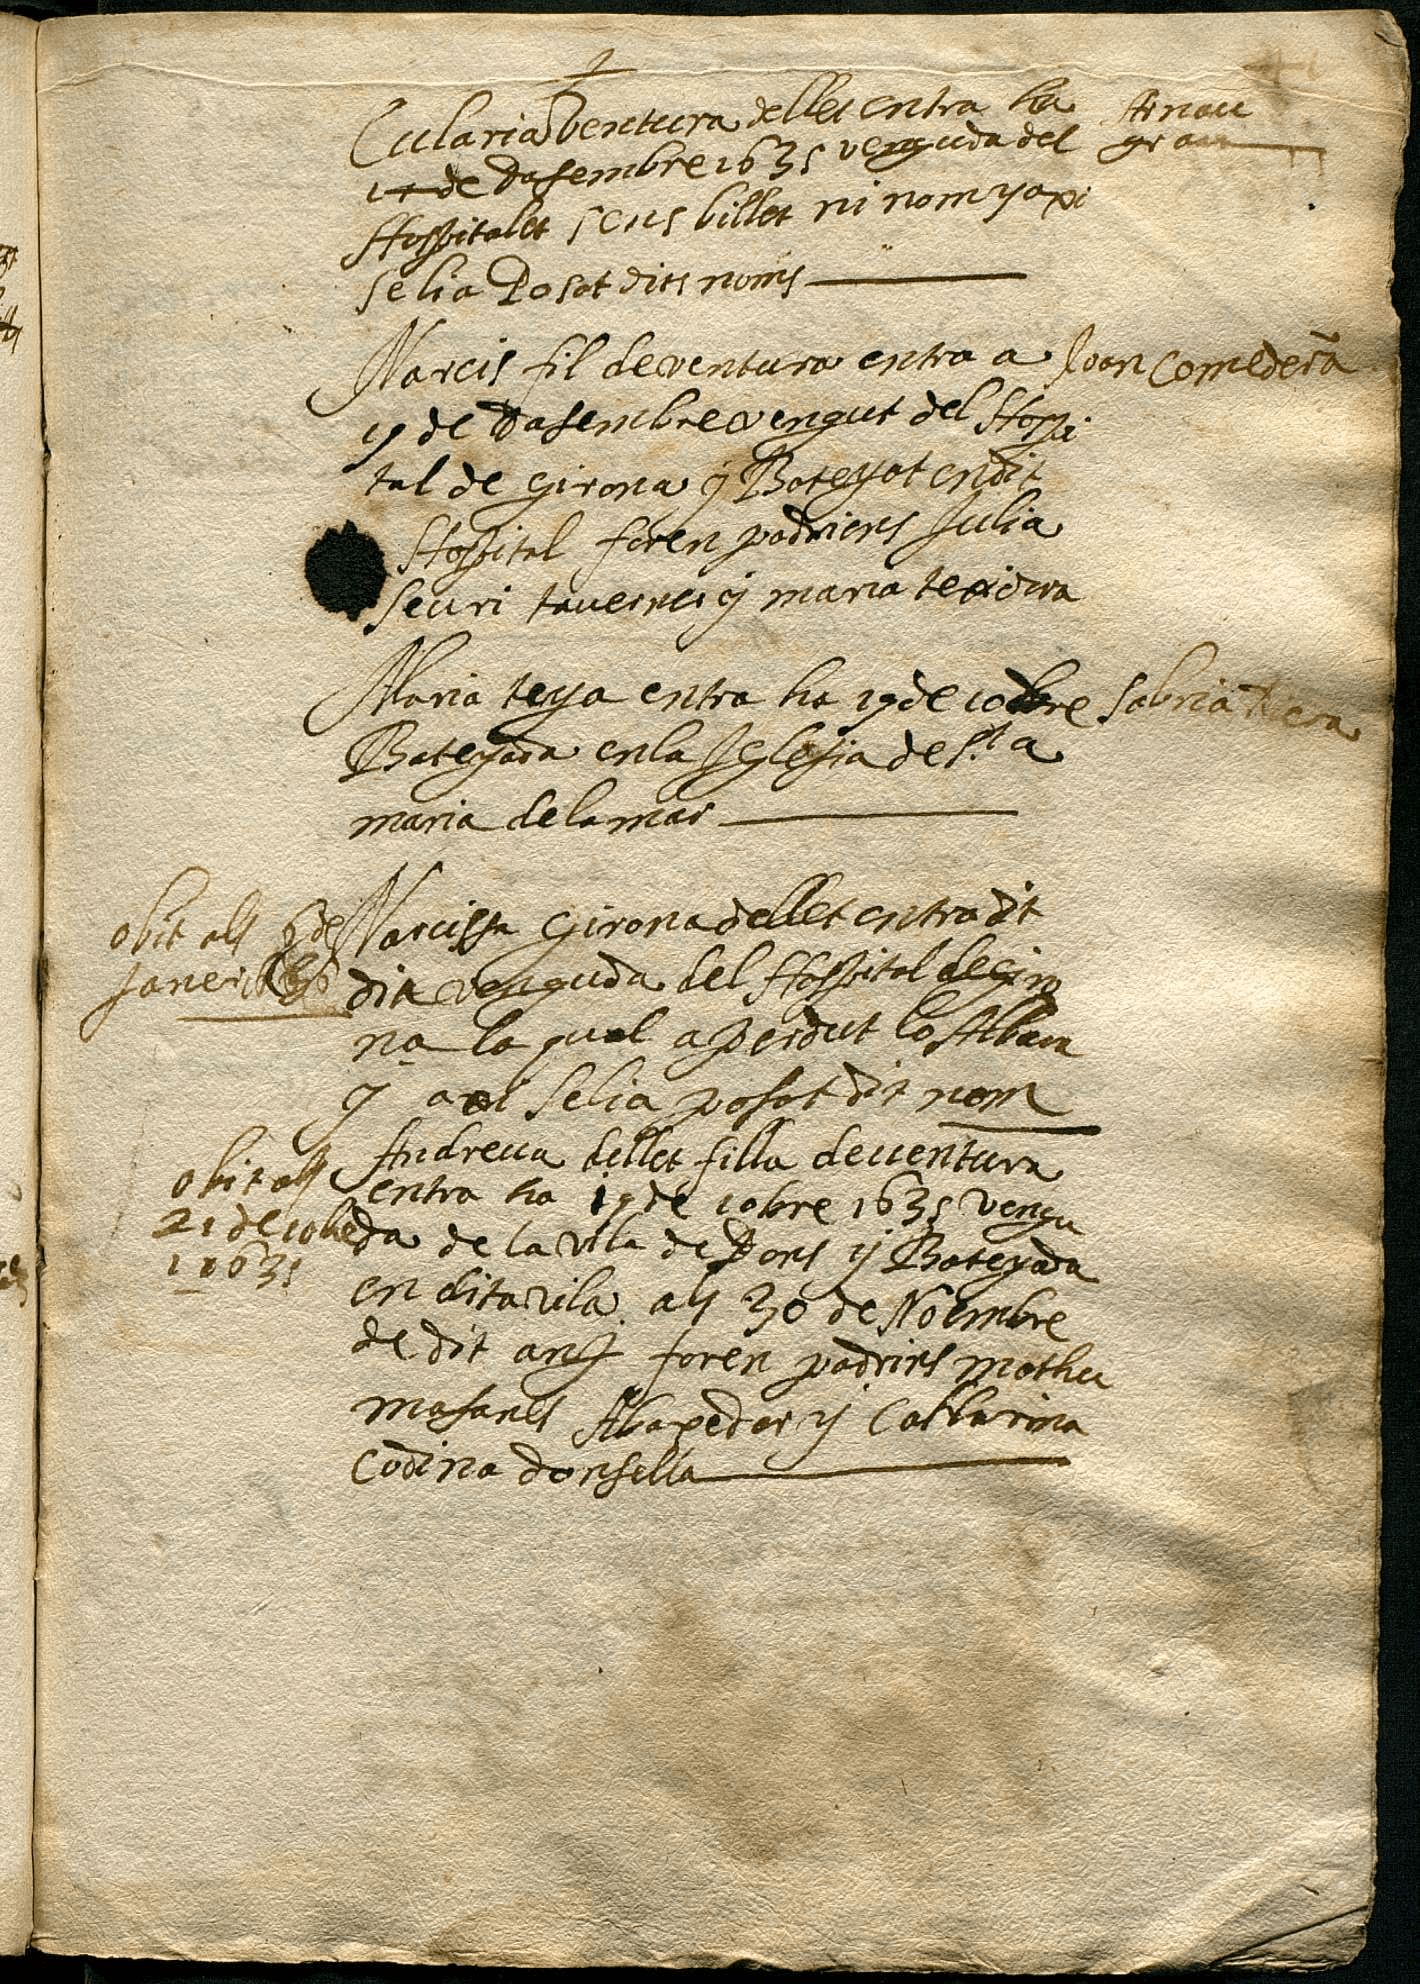 Eularia Ventura dellet entra ha
de Dasembre 1635 venguda del
Hospitalet sens billet ni nom y axi
se li a Posat dits noms
Arnau
gran
Narcis fil de ventura entra a
19 de Dasembre vengut del Hospi
tal de Girona y Bateyat en dit
Hospital foren padriens Julia
Seuri tauerner y maria texidora
Joan Comedera
Maria teya entra ha 19 de 10bre
Bateyada en la Iglesia de S.ta
maria de la mar
Sabria
obit als 6 de
Janer
Narcissa Girona dellet entra dit
dia venguda del Hospital de Giro
na la qual a perdut lo Albara
y axi se li a posat dit nom
obit als
21 de 10bre
1635
Andreua dellet filla de uentura
entra ha 19 de 10bre 1635 vengu
da de la vila de Pons y Bateyada
en dita vila als 30 de Noembre
de dit any foren padrins matheu
masanes Abaxedor y Catharina
Codina donsella